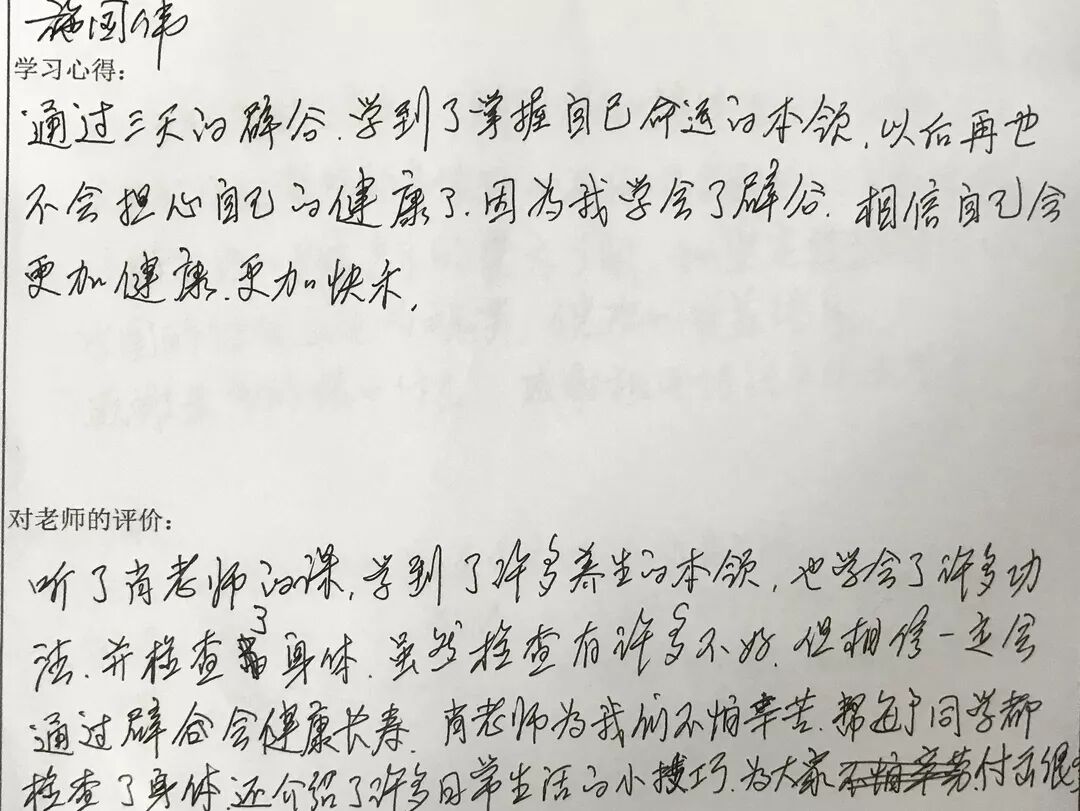 施国伟
学习心得：
通过三天的辟谷.学到了掌握自己命运的本领,以后再也
不会担心自己的健康了.因为我学会了辟谷.相信自己会
更加健康.更加快乐,
对老师的评价：
听了肖老师的课,学到了许多养生的本领,也学会了许多功
法.并检查了身体.虽然检查有许多不好.但相信一定会
通过辟谷会健康长寿.肖老师为我们不怕辛苦.帮每个同学都
检查了身体.还介绍了许多日常生活的小技巧.为大家不怕辛劳.付出很多